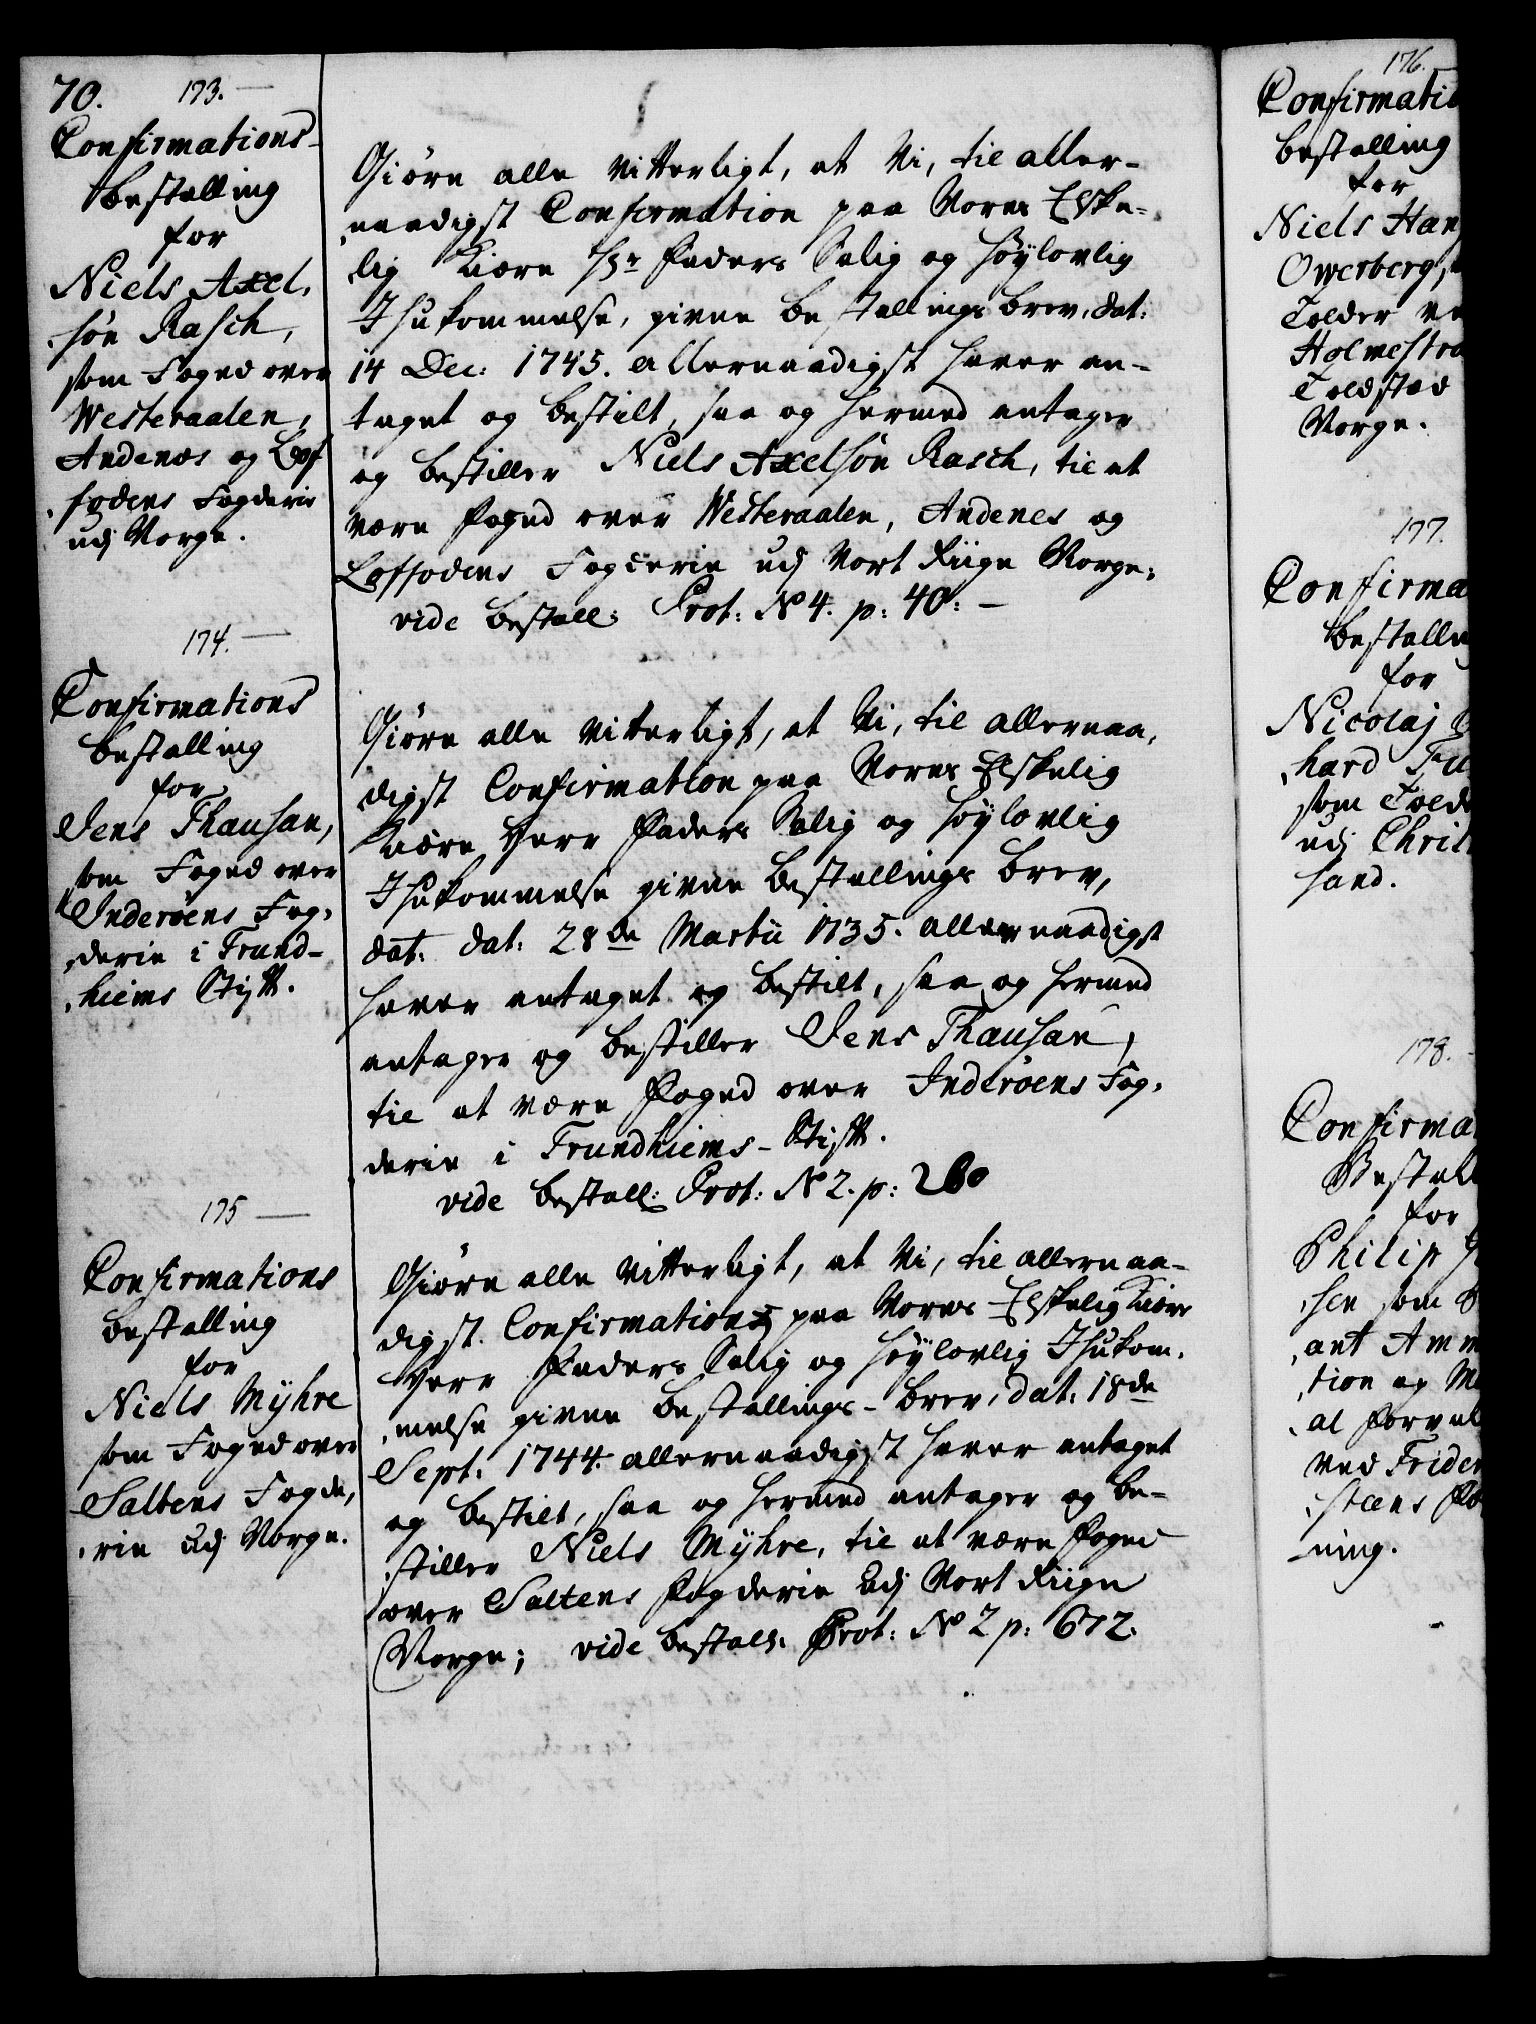 70.
173.
Confirmations-
bestalling
for
Niels Axel,
,søn Rasch,
som Foged over
Westeraalen,
Andenæs og Lof
,fodens Fogderie
udj Norge.
Giøre alle Vitterligt, at Vi, til aller-
,naadigst Confirmation paa Vores Elske-
lig Kiære Hr Faders Salig og Høylovlig
Ihukommelse, givne bestallings brev, dat:
14 Dec: 1745. allernaadigst haver an-
taget og bestilt, saa og hermed antager
og bestiller Niels Axelsøn Rasch, til at
være Foged over Westeraalen, Andenes og
Loffodens Fogderie udj Vort Riige Norge;
vide bestall: Prot: No 4. p: 40: -
174.
Confirmations
bestalling
for
Jens Thausan,
som Foged over
Inderøens Fog,
,derie i Trund-
,hiems Stift.
Giøre alle Vitterligt, at Vi, til allernaa,
digst Confirmation paa Vores Elskelig
Kiære Herr Faders Salig og Høylovlig
Ihukommelse givne bestallings brev,
dat. dat: 28de Martii 1735. allernaadigst
haver antaget og bestilt, saa og hermed
antager og bestiller Jens Thausan,
til at være Foged over Inderøens Fog,
derie i Trundhiems-Stift.
vide bestall: Prot: No 2. p: 260
175
Confirmations
bestalling
for
Niels Myhre
som Foged over
Saltens Fogde,
,rie udj Norge.
Giøre alle Vitterligt, at Vi, til allernaa-
digst Confirmation paa Vores Elskelig Kiære
Herr Faders Salig og Høylovlig Ihukom,
,melse givne bestallings-brev, dat: 18de
Sept: 1744. allernaadigst haver antaget
og bestilt, saa og hermed antager og be-
stiller Niels Myhre, til at være Foged
over Saltens Fogderie udj Vort Riige
Norge; vide bestall: Prot: No 2 p: 672.
176.
Confirmatio
bestalling
for
Niels Han
Owerberg,
Tolder ve
Holmestra
Toldsted
Norge.
177.
Confirma
bestallin
for
Nicolaj
,hard Tu
som Told
udj Christ
sand.
178.
Confirma
Bestal
for
Philip
,sen som
,ant Amm
,tion og Ma
,al Forval
ved Frider
,steens Fæ
ning.